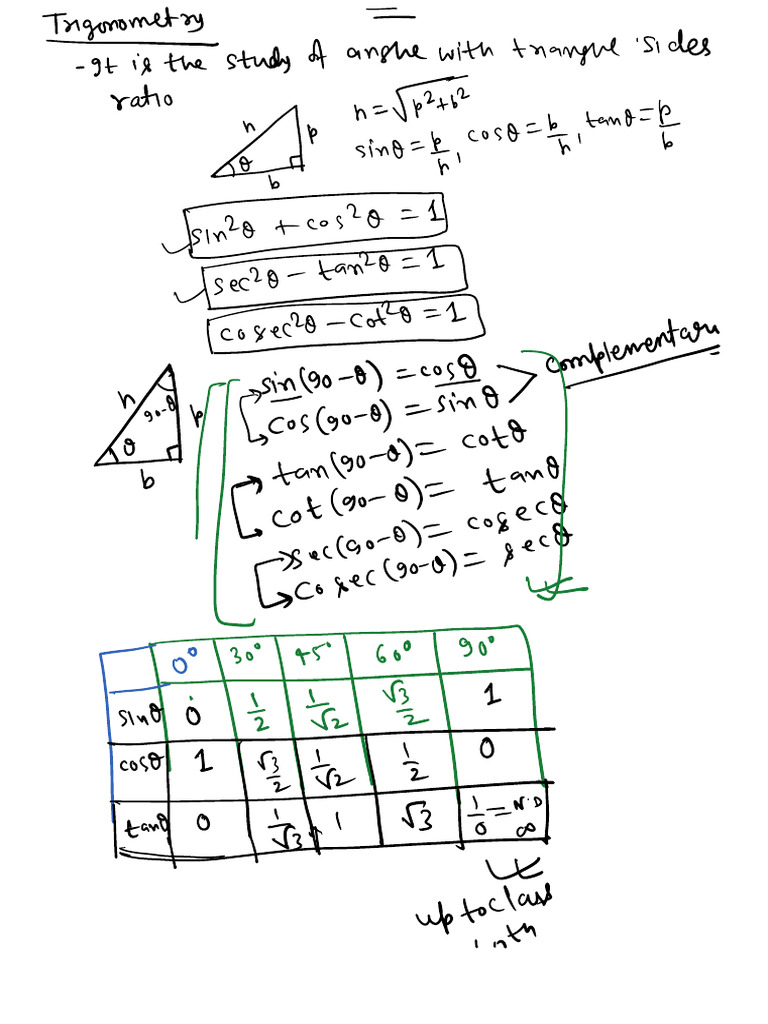 Trigonometry
- It is the study of angle with triangle sides
ratio
h p θ b
h = √p²+b²
sinθ = p/h, cosθ = b/h, tanθ = p/b
sin²θ + cos²θ = 1
sec²θ - tan²θ = 1
cosec²θ - cot²θ = 1
complementary
h 90-θ p θ b
sin(90-θ) = cosθ
cos(90-θ) = sinθ
tan(90-θ) = cotθ
cot(90-θ) = tanθ
sec(90-θ) = cosecθ
cosec(90-θ) = secθ
0° 30° 45° 60° 90°
sinθ 0 1/2 1/√2 √3/2 1
cosθ 1 √3/2 1/√2 1/2 0
tanθ 0 1/√3 1 √3 1/0 = N.D ∞
up to class